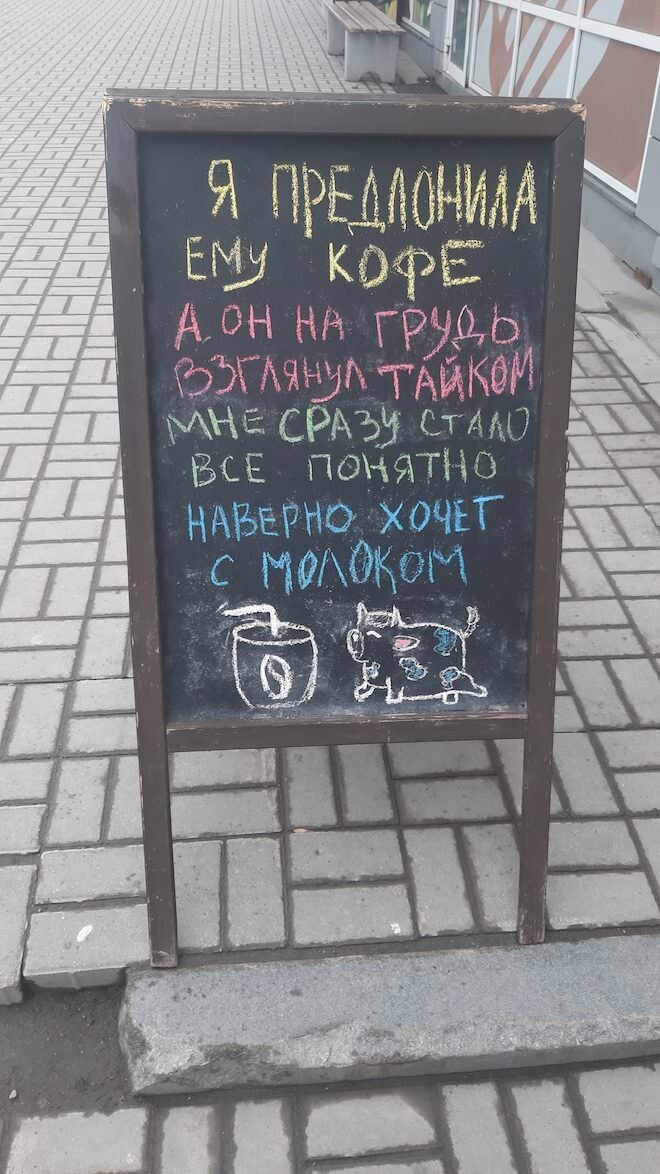 Я ПРЕДЛОНИЛА
ЕМУ КОФЕ
А ОН НА ГРУДЬ
ВЗГЛЯНУЛ ТАЙКОМ
МНЕ СРАЗУ СТАЛО
ВСЕ ПОНЯТНО
НАВЕРНО ХОЧЕТ
С МОЛОКОМ